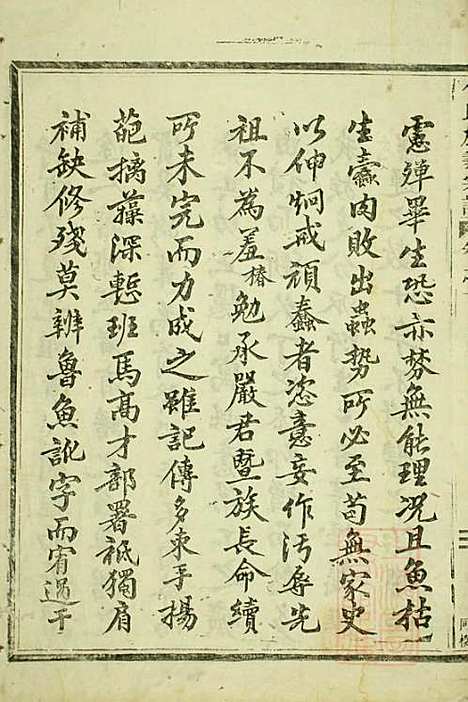 慮殫畢生恐亦棼無能理况且魚枯
生蠹肉敗出蟲勢所必至苟無家史
以伸炯戒頑蠢者恣意妄作污辱先
祖不為羞椿勉承嚴君暨族長命續
所未完而力成之雖記傳多束手揚
葩摛藻深慙班馬高才部署祇獨肩
補缺修殘莫辨魯魚訛字而宥過干